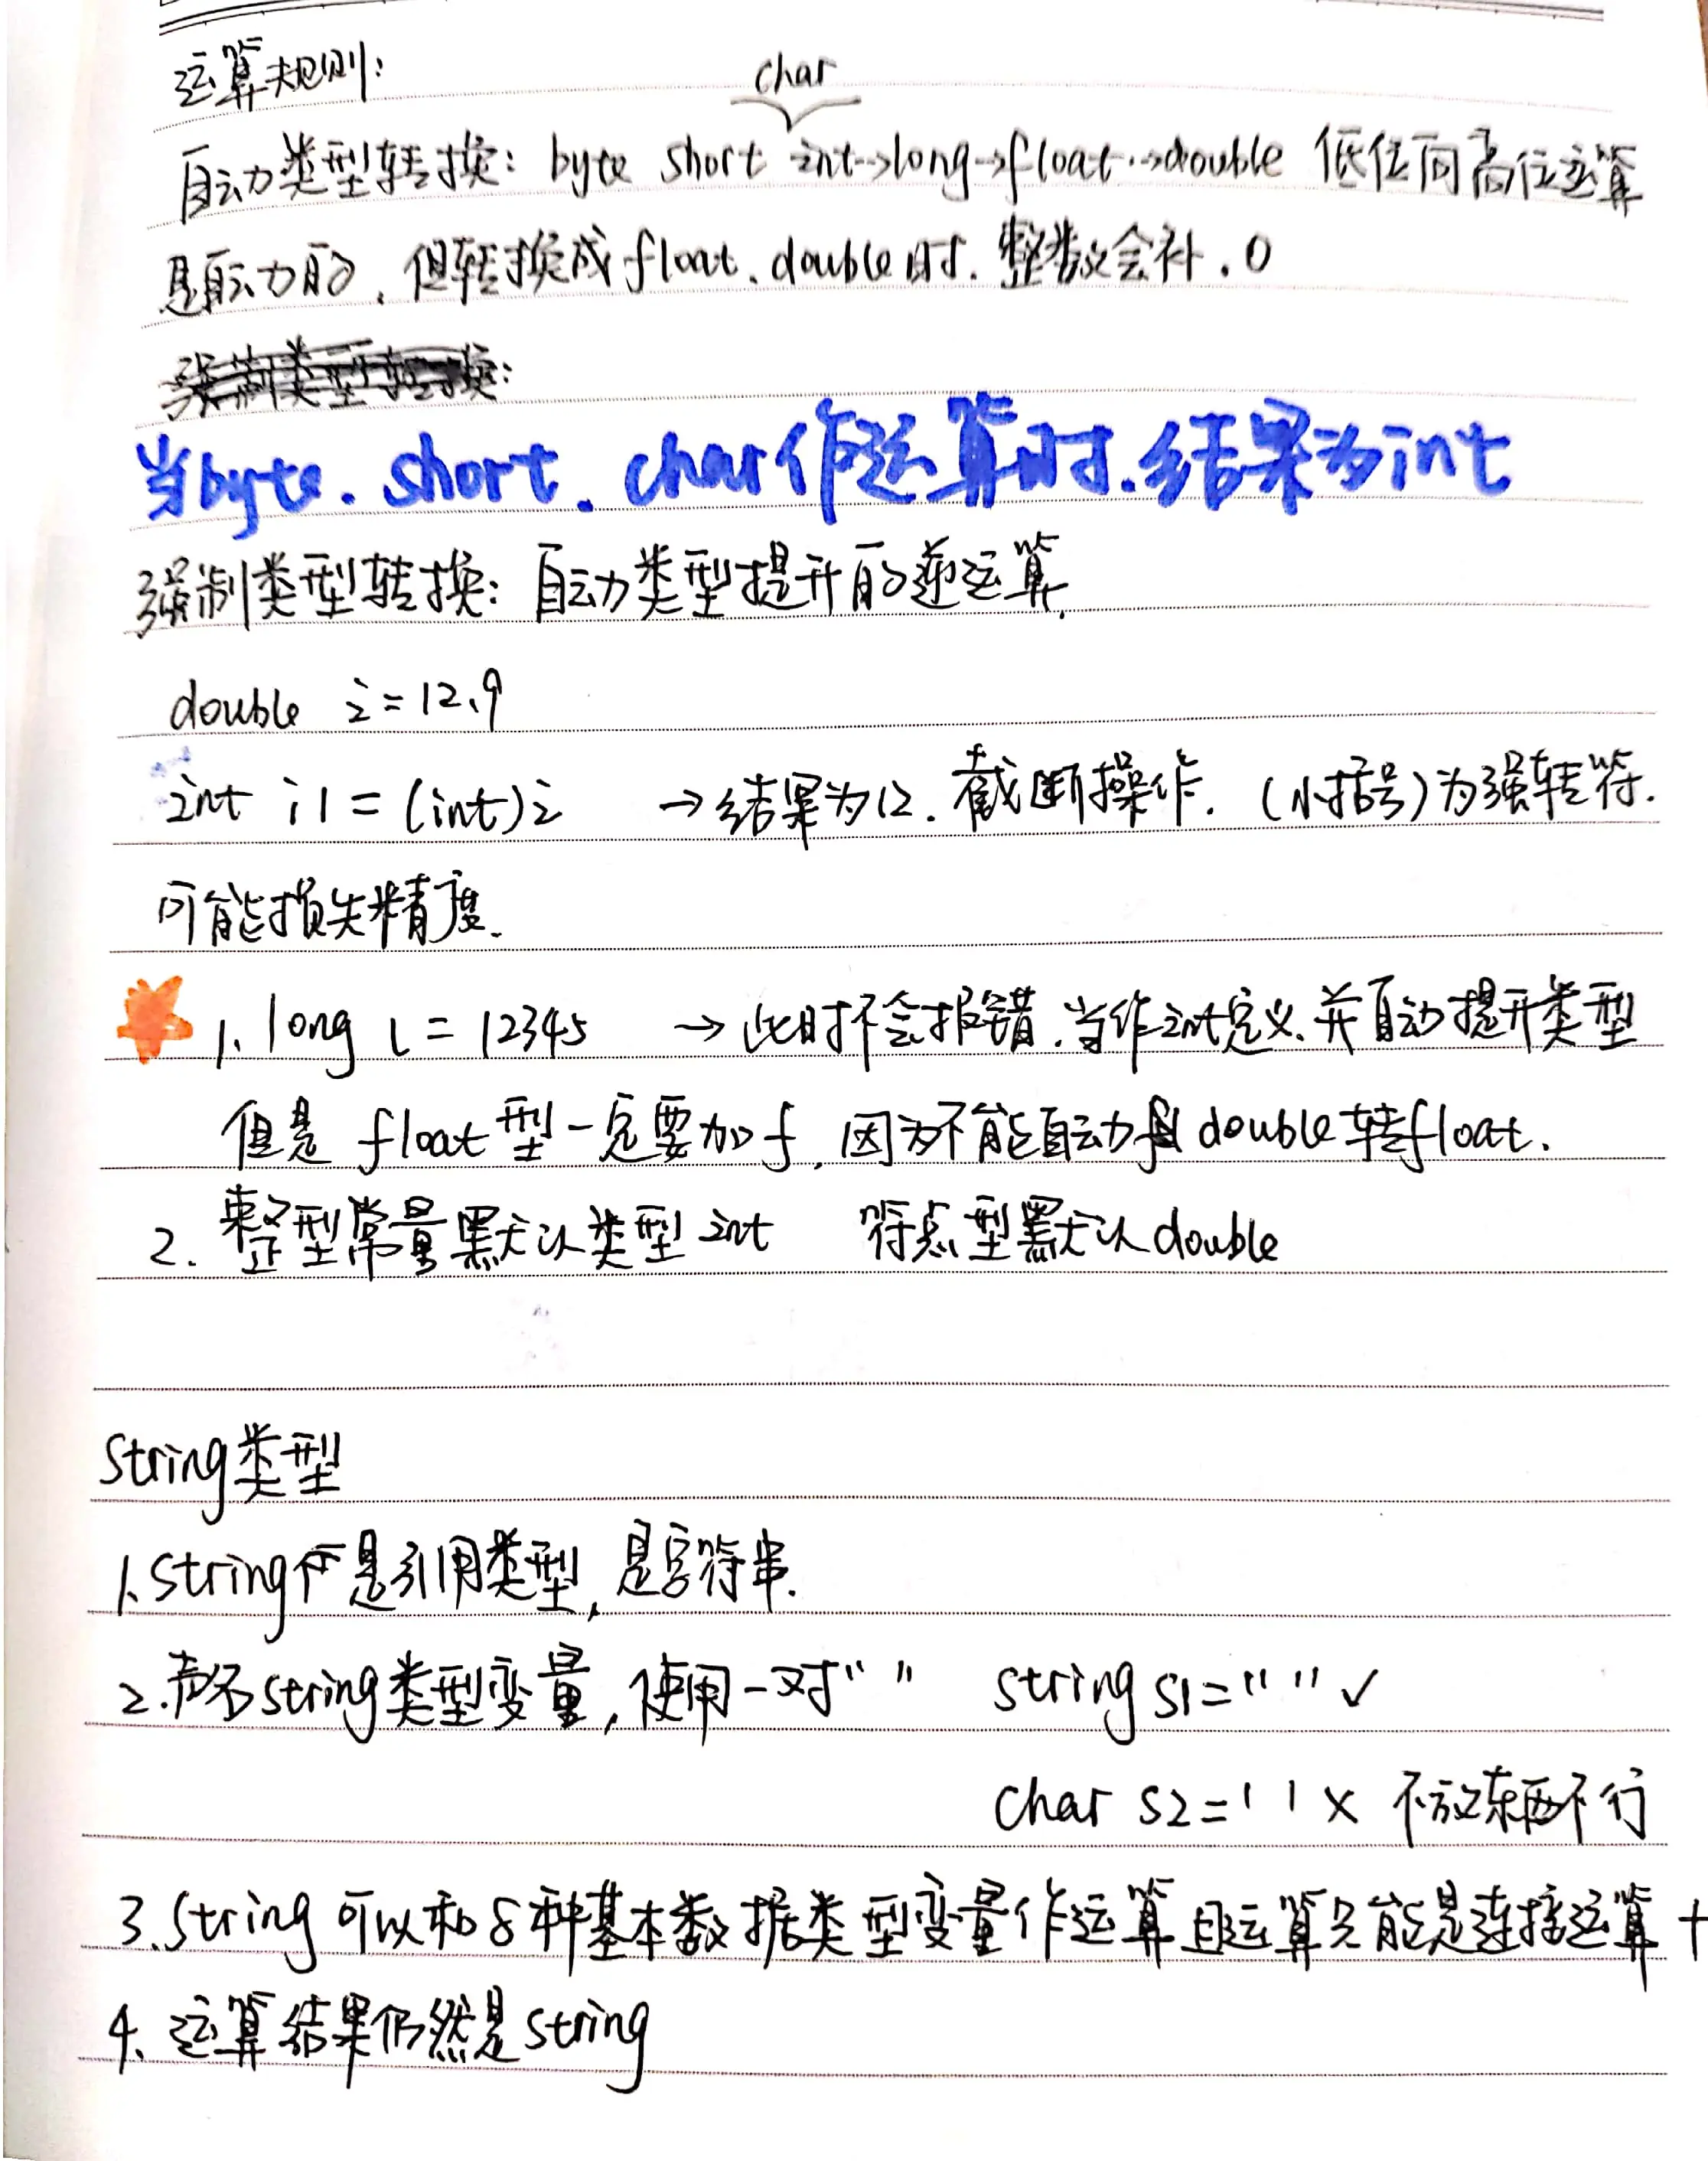 运算规则:
char
自动类型转换: byte short int->long->float->double 低位向高位运算
是自动的, 但转换成float、double时. 整数会补.0
强制类型转换:
当byte. short. char作运算时.结果为int
强制类型转换: 自动类型提升的逆运算.
double i=12.9
int i1 = (int)i →结果为12. 截断操作. (小括号)为强转符.
可能损失精度.
1. long l = 12345 → 此时不会报错.当作int定义.并自动提升类型
但是 float型一定要加f, 因为不能自动从double转float.
2. 整型常量默认类型int 浮点型默认double
String类型
1.String 是引用类型, 是字符串.
2.声名string类型变量, 使用一对" " string s1=" " ✓
char s2=' ' × 不放东西不行
3.String 可以和8种基本数据类型变量作运算 且运算只能是连接运算 +
4. 运算结果仍然是string